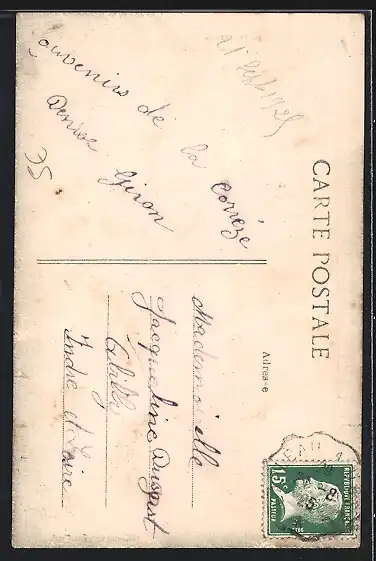 CARTE POSTALE
Adresse
21 Sept 1925
Souvenirs de la Corrèze
Denise Giron
35
Mademoiselle
Jacqueline
Abilly
Indre et Loire
REPUBLIQUE FRANÇAISE
15c
PASTEUR